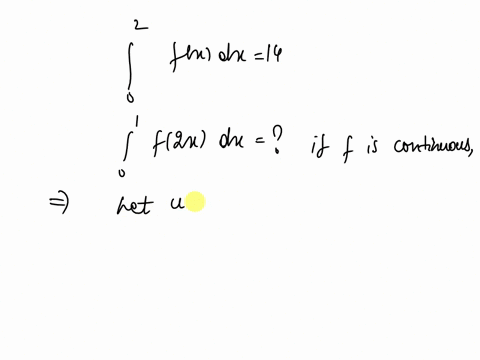 ∫₀² f(x) dx = 14
∫₀¹ f(2x) dx = ? if f is continuous,
⇒ Let u